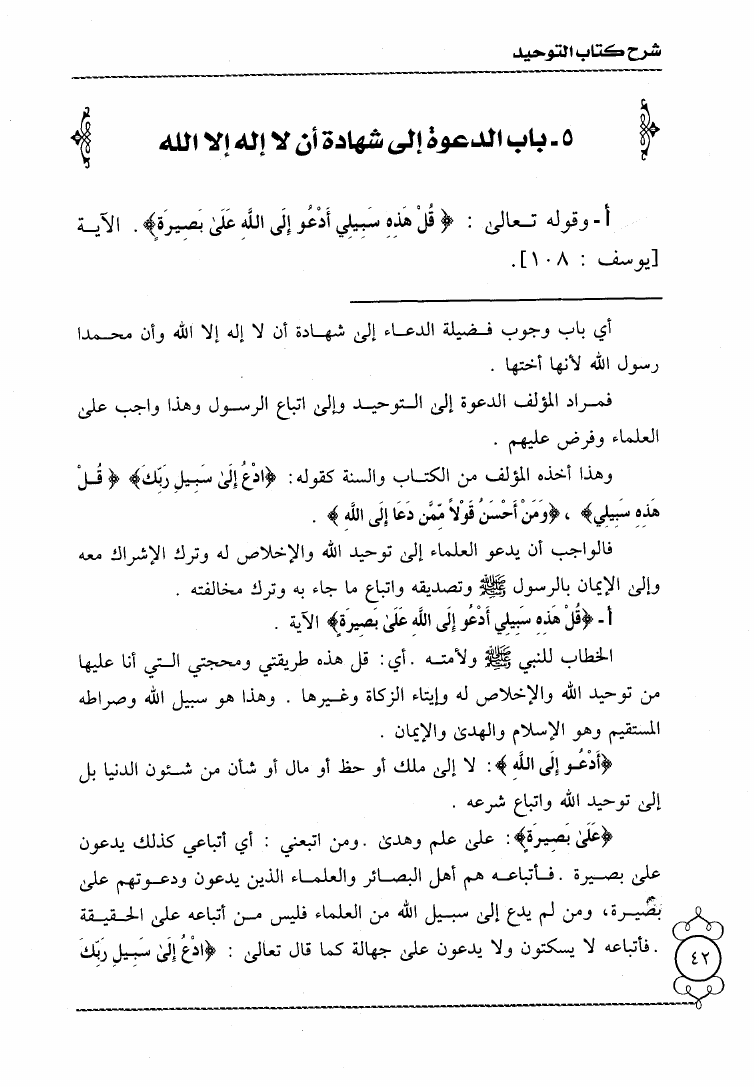 شرح كتاب التوحيد
٥ ـ باب الدعوة إلى شهادة أن لا إله إلا الله
أ ـ وقوله تعالى : ﴿ قُلْ هَذِهِ سَبِيلِي أَدْعُو إِلَى اللَّهِ عَلَىٰ بَصِيرَةٍ﴾ . الآية
[يوسف : ١٠٨].
أي باب وجوب فضيلة الدعاء إلى شهادة أن لا إله إلا الله وأن محمدا
رسول الله لأنها أختها .
فمراد المؤلف الدعوة إلى التوحيد وإلى اتباع الرسول وهذا واجب على
العلماء وفرض عليهم .
وهذا أخذه المؤلف من الكتاب والسنة كقوله: ﴿ادْعُ إِلَىٰ سَبِيلِ رَبِّكَ﴾ ﴿ قُلْ
هَذِهِ سَبِيلِي﴾ ، ﴿وَمَنْ أَحْسَنُ قَوْلاً مِّمَّن دَعَا إِلَى اللَّهِ ﴾ .
فالواجب أن يدعو العلماء إلى توحيد الله والإخلاص له وترك الإشراك معه
وإلى الإيمان بالرسول ﷺ وتصديقه واتباع ما جاء به وترك مخالفته .
أ ـ ﴿قُلْ هَذِهِ سَبِيلِي أَدْعُو إِلَى اللَّهِ عَلَىٰ بَصِيرَةٍ﴾ الآية .
الخطاب للنبي ﷺ ولأمته . أي: قل هذه طريقتي ومحجتي التي أنا عليها
من توحيد الله والإخلاص له وإيتاء الزكاة وغيرها . وهذا هو سبيل الله وصراطه
المستقيم وهو الإسلام والهدى والإيمان .
﴿أَدْعُو إِلَى اللَّهِ ﴾: لا إلى ملك أو حظ أو مال أو شأن من شئون الدنيا بل
إلى توحيد الله واتباع شرعه .
﴿عَلَىٰ بَصِيرَةٍ﴾: على علم وهدى . ومن اتبعني : أي أتباعي كذلك يدعون
على بصيرة . فأتباعه هم أهل البصائر والعلماء الذين يدعون ودعوتهم على
بصيرة، ومن لم يدع إلى سبيل الله من العلماء فليس من أتباعه على الحقيقة
. فأتباعه لا يسكتون ولا يدعون على جهالة كما قال تعالى : ﴿ادْعُ إِلَىٰ سَبِيلِ رَبِّكَ
٤٢